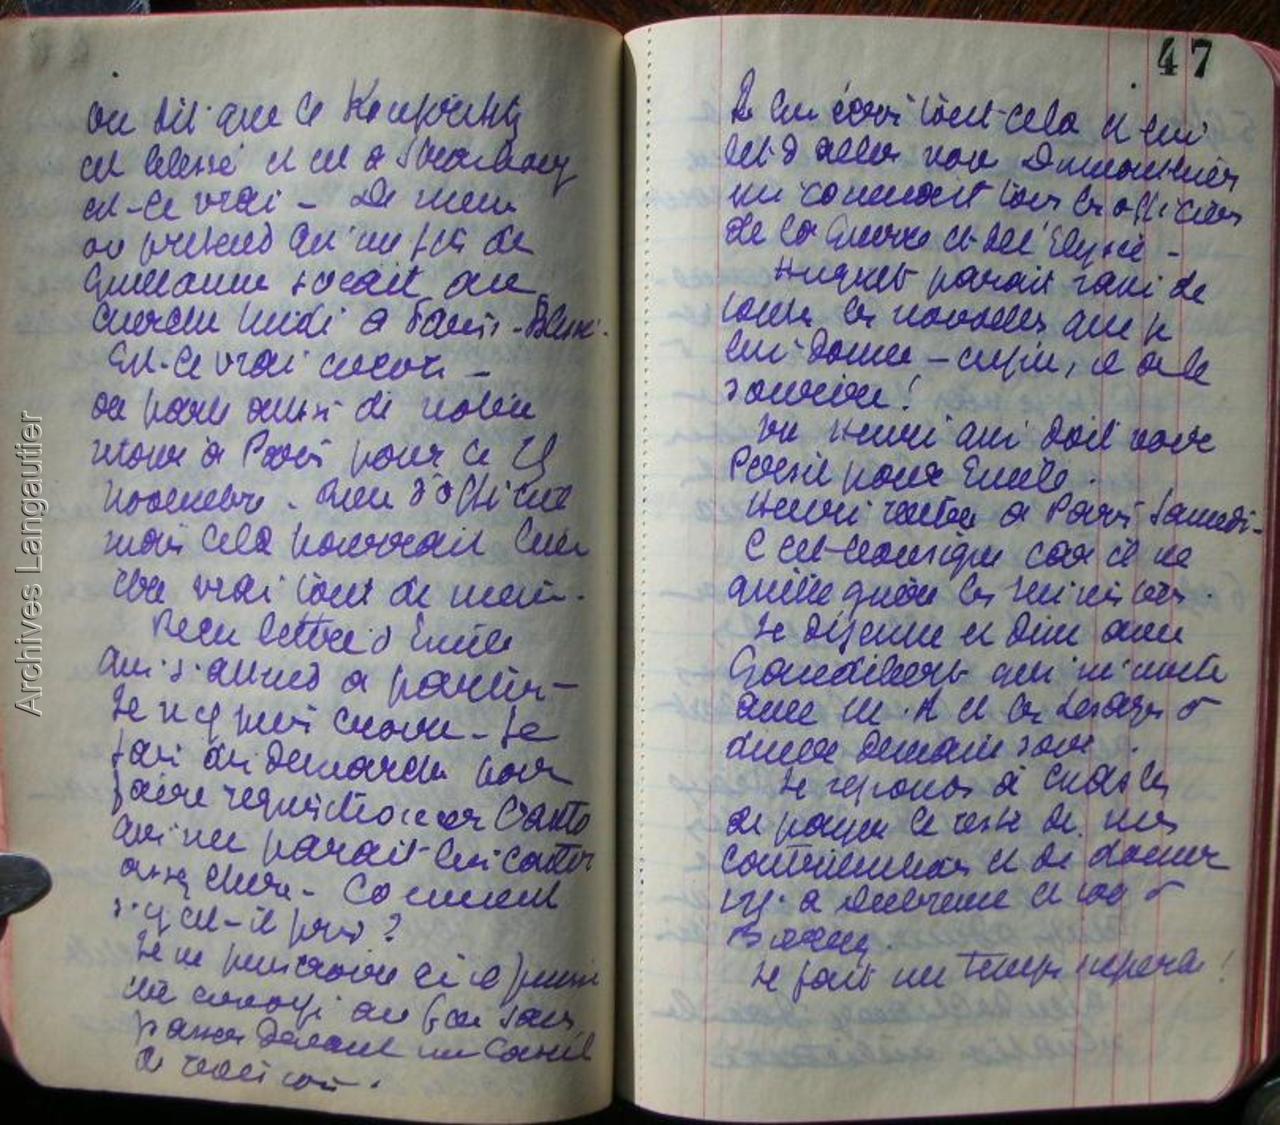 on dit que le Kronprinz
est blessé et est a Strasbourg
est-ce vrai - De meme
on pretend qu'un fils de
Guillaume serait au
cherche midi a Paris - Blessé.
Est-ce vrai encore -
on parle aussi de notre
retour a Paris pour le
novembre. Rien d'officiel
mais cela pourrait bien
être vrai tout de meme.
Recu lettre d'Emile
qui s'attend a partir -
Je n'y puis croire - Je
fais des demarches pour
faire requisitionner l'auto
qui me parait lui couter
assez chere - Comment
s'y est-il pris ?
Je ne puis croire qu'il puisse
etre envoyé au feu sans
passer devant un Conseil
de revision.
47
Je lui écris tout cela et lui
dis d'aller voir Dumoustier
qui connait tous les officiers
de la Guerre et de l'Elysée -
Huguet parait ravi de
toutes les nouvelles que je
lui donne - enfin, il a le
sourire !
Vu Henri qui doit voir
pour Emile.
Henri rentre a Paris Samedi -
C'est comique car il ne
quitte guère les ministères.
Je déjeune et dine avec
Gaudibert qui m'invite
avec M. A et les Lesage a
diner demain soir.
Je reponds à Charles
de payer le reste de mes
contributions et de donner
a et 100 a
Je fait un temps superbe !